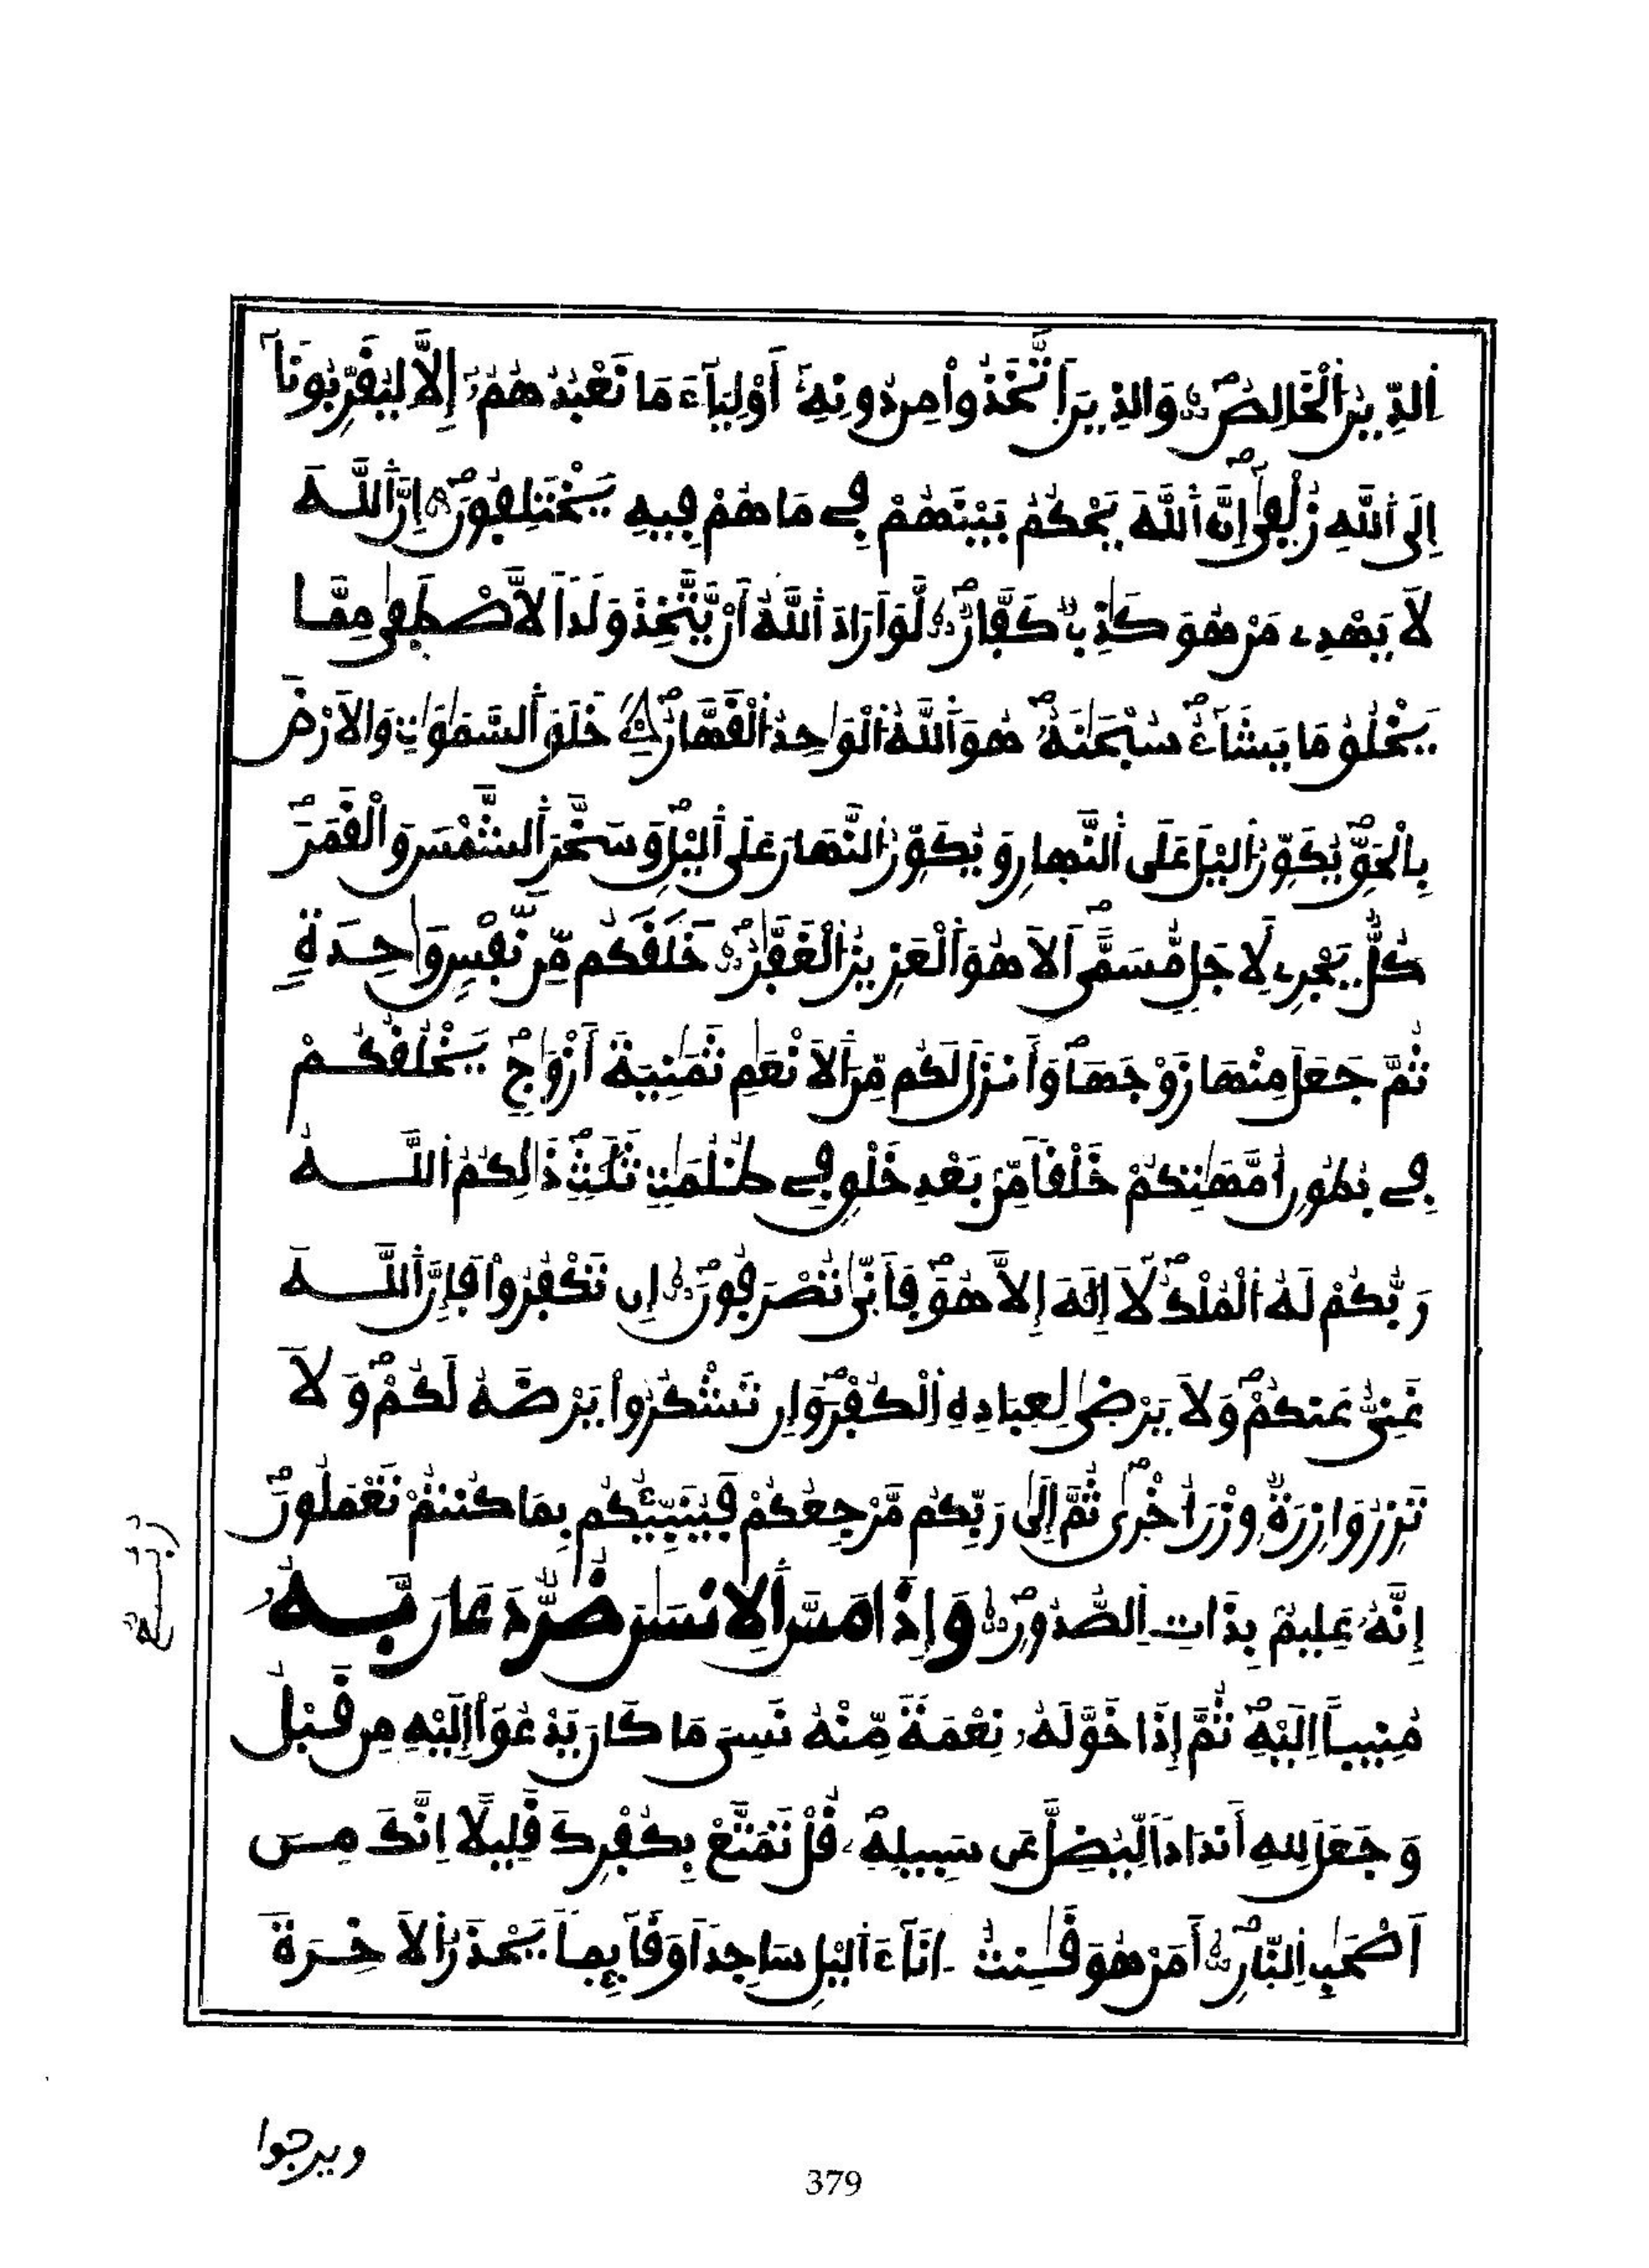 اَ۬لدِّينُ اُ۬لْخَالِصُۖ وَالذِينَ اَ۪تَّخَذُواْ مِن دُونِهِۦٓ أَوْلِيَآءَ مَا نَعْبُدُهُمُۥٓ إِلَّا لِيُقَرِّبُونَآ
إِلَى اَ۬للَّهِ زُلْفىٰٓۖ إِنَّ اَ۬للَّهَ يَحْكُمُ بَيْنَهُمْ فِے مَا هُمْ فِيهِ يَخْتَلِفُونَۖ إِنَّ اَ۬للَّهَ
لَا يَهْدِے مَنْ هُوَ كَٰذِبٞ كَفَّارٞۖ لَّوَ اَرَادَ اَ۬للَّهُ أَنْ يَّتَّخِذَ وَلَداٗ لَّاصْطَفىٰ مِمَّا
يَخْلُقُ مَا يَشَآءُۖ سُبْحَٰنَهُۥۖ هُوَ اَ۬للَّهُ اُ۬لْوَٰحِدُ اُ۬لْقَهَّارُۖ خَلَقَ اَ۬لسَّمَٰوَٰتِ وَالَارْضَ
بِالْحَقِّۖ يُكَوِّرُ اُ۬ليْلَ عَلَى اَ۬لنَّهارِ وَيُكَوِّرُ اُ۬لنَّهَارَ عَلَى اَ۬ليْلِۖ وَسَخَّرَ اَ۬لشَّمْسَ وَالْقَمَرَۖ
كُلّٞ يَجْرِے لِأَجَلٖ مُّسَمًّىۖ اَلَا هُوَ اَ۬لْعَزِيزُ اُ۬لْغَفَّٰرُۖ خَلَقَكُم مِّن نَّفْسٖ وَٰحِدَةٖ
ثُمَّ جَعَلَ مِنْهَا زَوْجَهَاۖ وَأَنزَلَ لَكُم مِّنَ اَ۬لَانْعَٰمِ ثَمَٰنِيَةَ أَزْوَٰجٖۖ يَخْلُقُكُمْ
فِے بُطُونِ أُمَّهَٰتِكُمْ خَلْقاٗ مِّنۢ بَعْدِ خَلْقٖ فِے ظُلُمَٰتٖ ثَلَٰثٖۖ ذَٰلِكُمُ اُ۬للَّهُ
رَبُّكُمْ لَهُ اُ۬لْمُلْكُۖ لَآ إِلَٰهَ إِلَّا هُوَۖ فَأَنّ۪يٰ تُصْرَفُونَۖ إِن تَكْفُرُواْ فَإِنَّ اَ۬للَّهَ
غَنِيٌّ عَنكُمْۖ وَلَا يَرْضىٰ لِعِبَادِهِ اِ۬لْكُفْرَۖ وَإِن تَشْكُرُواْ يَرْضَهُ لَكُمْۖ وَلَا
تَزِرُ وَازِرَةٞ وِزْرَ أُخْر۪يٰۖ ثُمَّ إِلَىٰ رَبِّكُم مَّرْجِعُكُمْ فَيُنَبِّئُكُم بِمَا كُنتُمْ تَعْمَلُونَۖ
إِنَّهُۥ عَلِيمُۢ بِذَاتِ اِ۬لصُّدُورِۖ وَإِذَا مَسَّ اَ۬لِانسَٰنَ ضُرّٞ دَعَا رَبَّهُۥ
مُنِيباً اِلَيْهِۖ ثُمَّ إِذَا خَوَّلَهُۥ نِعْمَةٗ مِّنْهُ نَسِيَ مَا كَانَ يَدْعُوٓاْ إِلَيْهِ مِن قَبْلُ
وَجَعَلَ لِلهِ أَندَاداٗ لِّيُضِلَّ عَن سَبِيلِهِۦۖ قُلْ تَمَتَّعْ بِكُفْرِكَ قَلِيلًا اِنَّكَ مِنَ
اَصْحَٰبِ اِ۬لنّ۪ارِۖ أَمَنْ هُوَ قَٰنِتٌ اٰنَآءَ اَ۬ليْلِ سَاجِداٗ وَقَآئِماٗ يَحْذَرُ اُ۬لَاخِرَةَ
ربع
ويرجوا
379